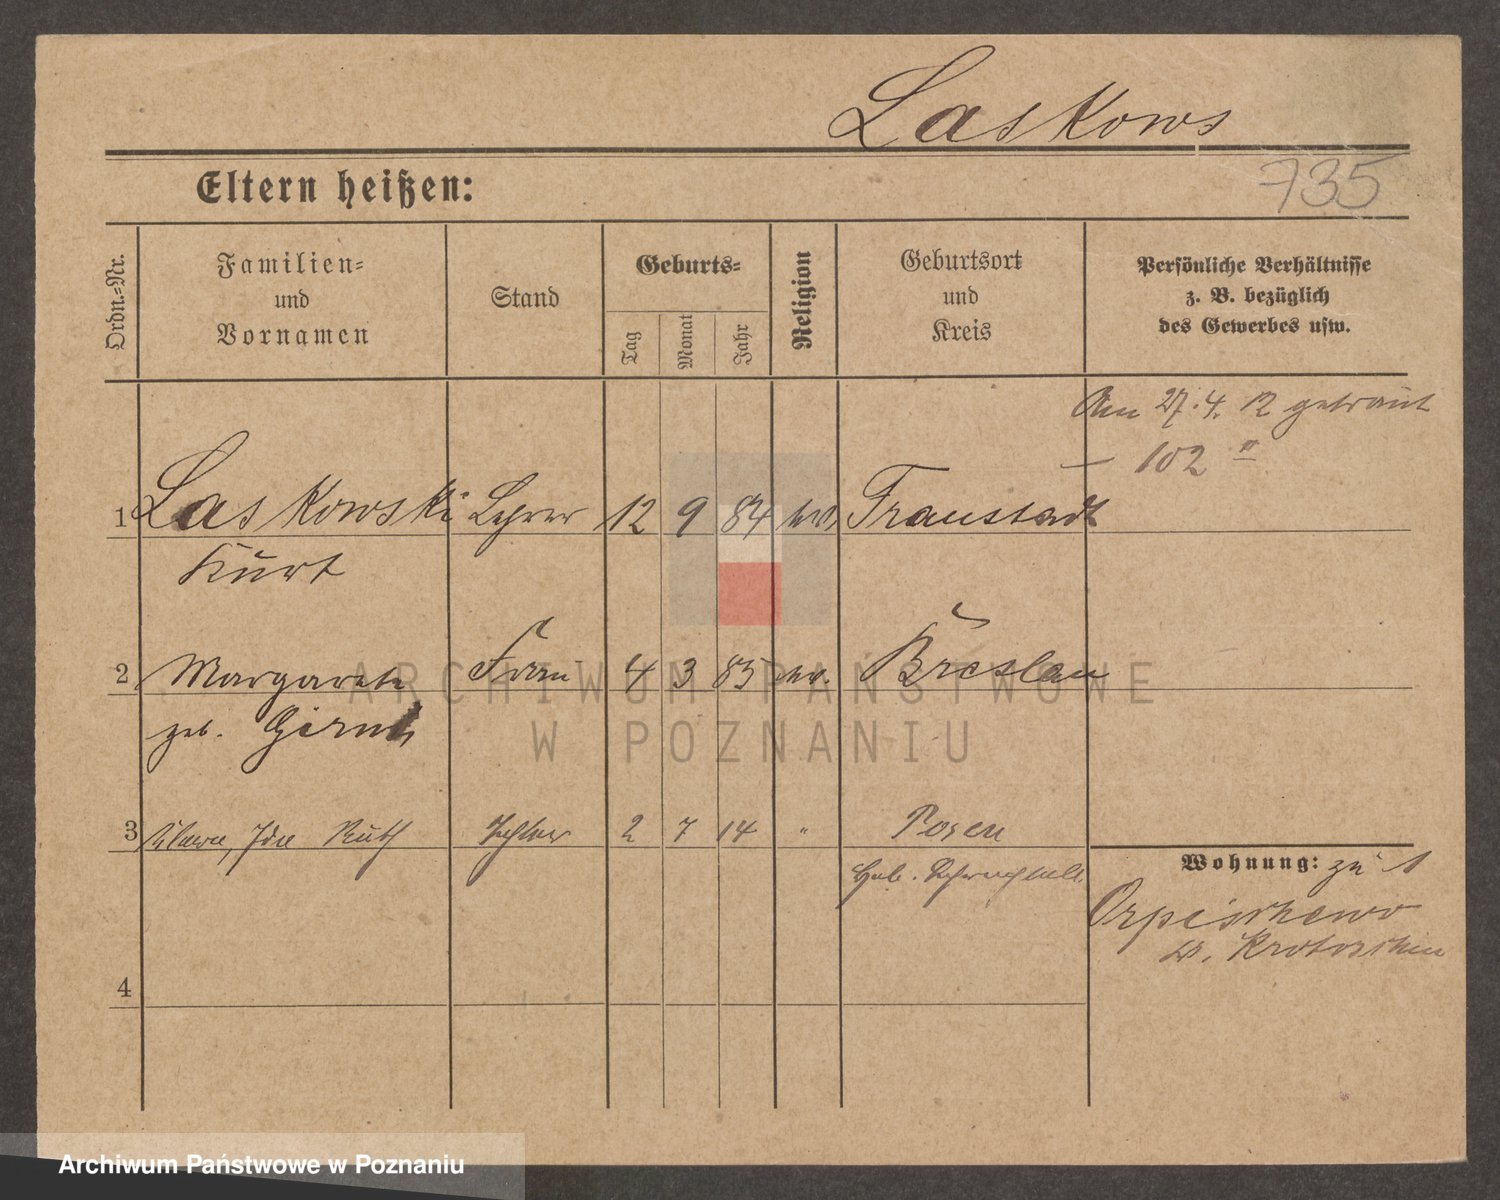 Laskows
Eltern heißen:
735
Ordn.=Nr.
Familien=
und
Vornamen
Stand
Geburts=
Tag
Monat
Jahr
Religion
Geburtsort
und
Kreis
Persönliche Verhältnisse
z. B. bezüglich
des Gewerbes usw.
Am 27.4.12 getraut
— 102
1 Laskowski Lehrer 12 9 84 Fraustadt
Kurt
2 Margarete Frau 4 3 85 Breslau
geb.
3 Ruth Tochter 2 7 14 " Posen
Geb.
Wohnung: zu 1
Orpischewo
Krotoschin
4
ARCHIWUM PAŃSTWOWE
W POZNANIU
Archiwum Państwowe w Poznaniu